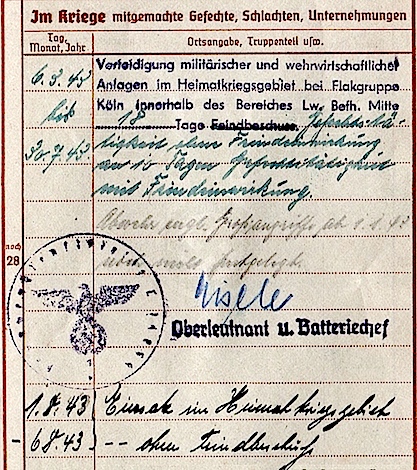 Im Kriege mitgemachte Gefechte, Schlachten, Unternehmungen
Tag, Monat, Jahr
Ortsangabe, Truppenteil usw.
6.3.43
bis
30.7.43
Verteidigung militärischer und wehrwirtschaftlicher
Anlagen im Heimatkriegsgebiet bei Flakgruppe
Köln innerhalb des Bereiches Lw. Befh. Mitte
18 Tage Feindbeschuss. Gefechtstä-
tigkeit ohne Feindeinwirkung
an 10 Tagen Gefechtstätigkeit
mit Feindeinwirkung.
Abwehr engl. Großangriffe ab 1.1.43
festgelegt.
noch
28
Oberleutnant u. Batteriechef
1.8.43 Einsatz im Heimatkriegsgebiet
- 6.8.43 -- ohne Feindbeschuß